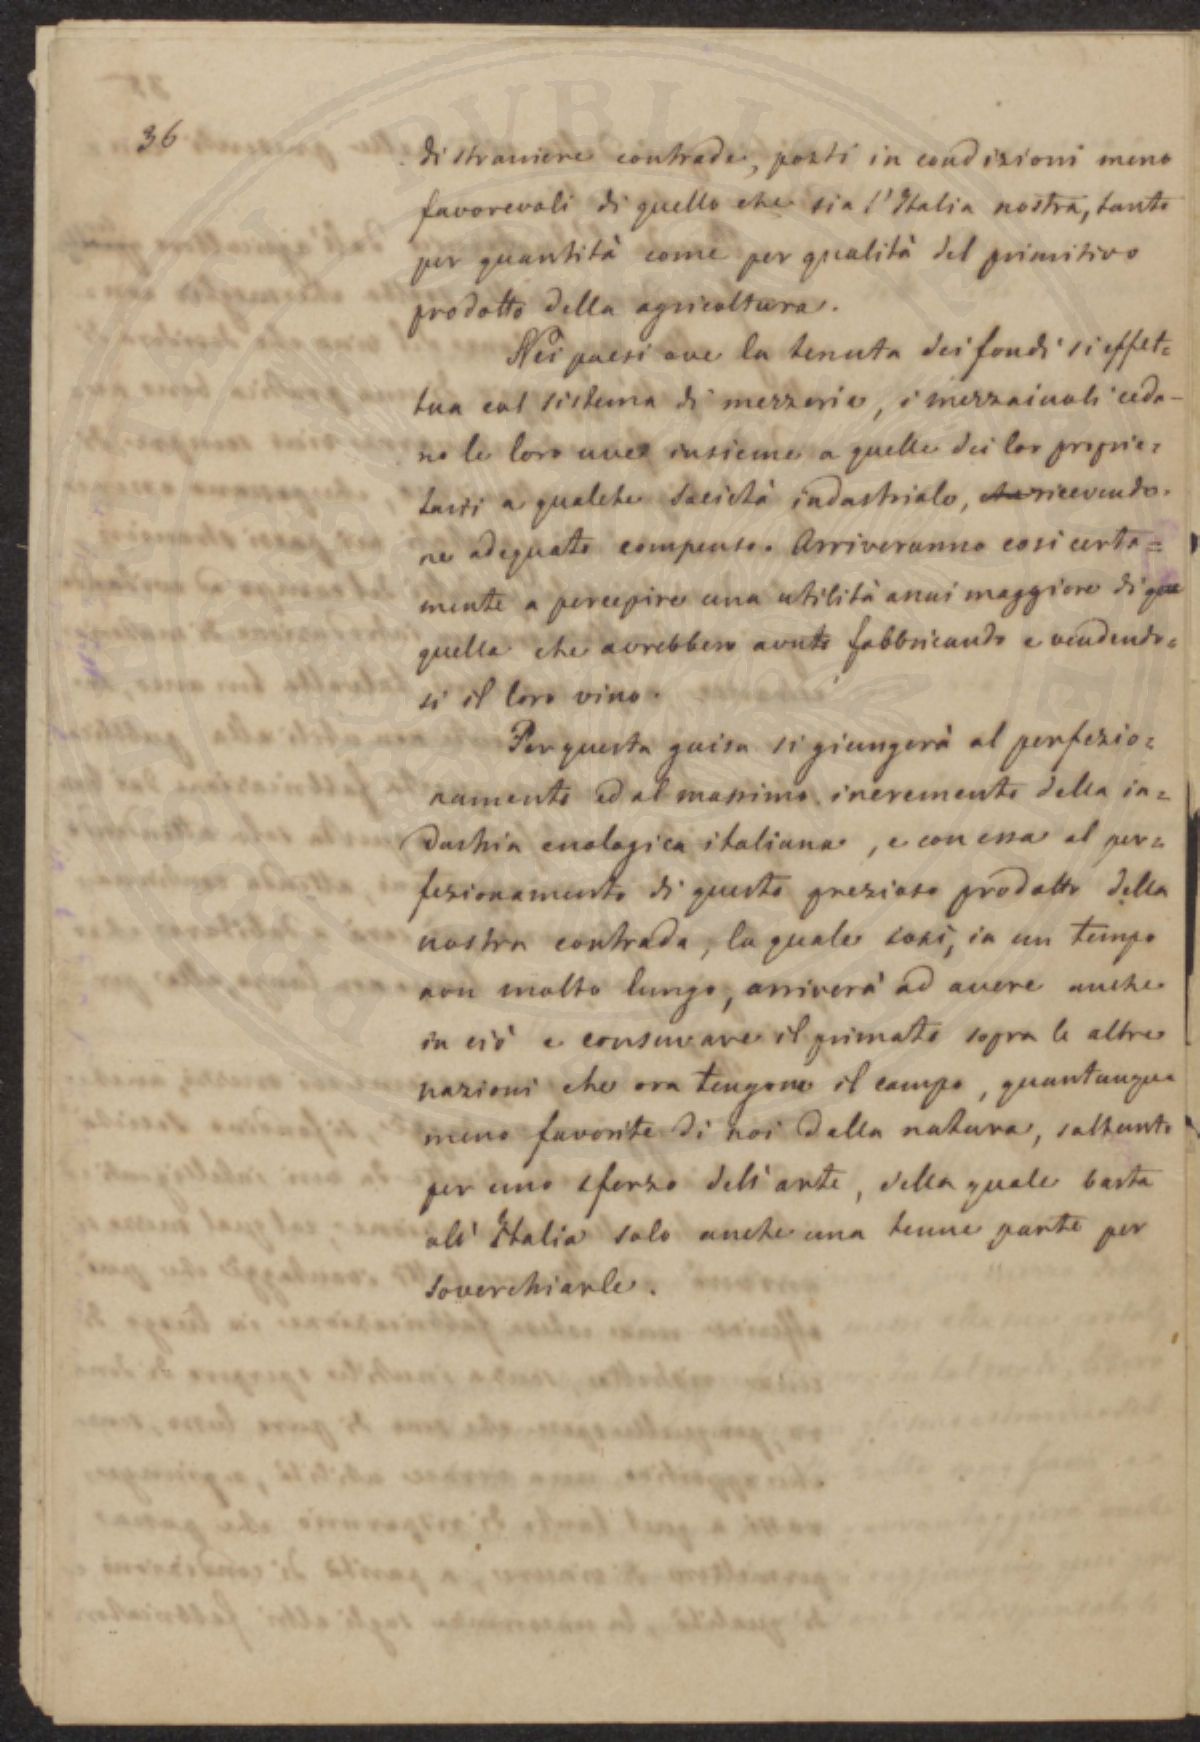 36
di straniere contrade, posti in condizioni meno
favorevoli di quello che sia l'Italia nostra, tanto
per quantità come per qualità del primitivo
prodotto della agricoltura.
Nei paesi ove la tenuta dei fondi si effet=
tua col sistema di mezzeria, i mezzaiuoli ceda-
no le loro uve insieme a quelle dei lor proprie=
tarii a qualche società industriale, ricevendo-
ne adeguato compenso. Arriveranno così certa=
mente a percepire una utilità anni maggiore di que
quella che avrebbero avuto fabbricando e vendendo=
si il loro vino.
Per questa guisa si giungerà al perfezio=
namento ed al massimo incremento della in=
dustria enologica italiana, e con essa al per=
fezionamento di questo prezioso prodotto della
nostra contrada, la quale così, in un tempo
non molto lungo, arriverà ad avere anche
in ciò e conservare il primato sopra le altre
nazioni che ora tengono il campo, quantunque
meno favorite di noi dalla natura, soltanto
per uno sforzo dell'arte, della quale basta
all'Italia solo anche una tenue parte per
soverchiarle.
PUBLIC